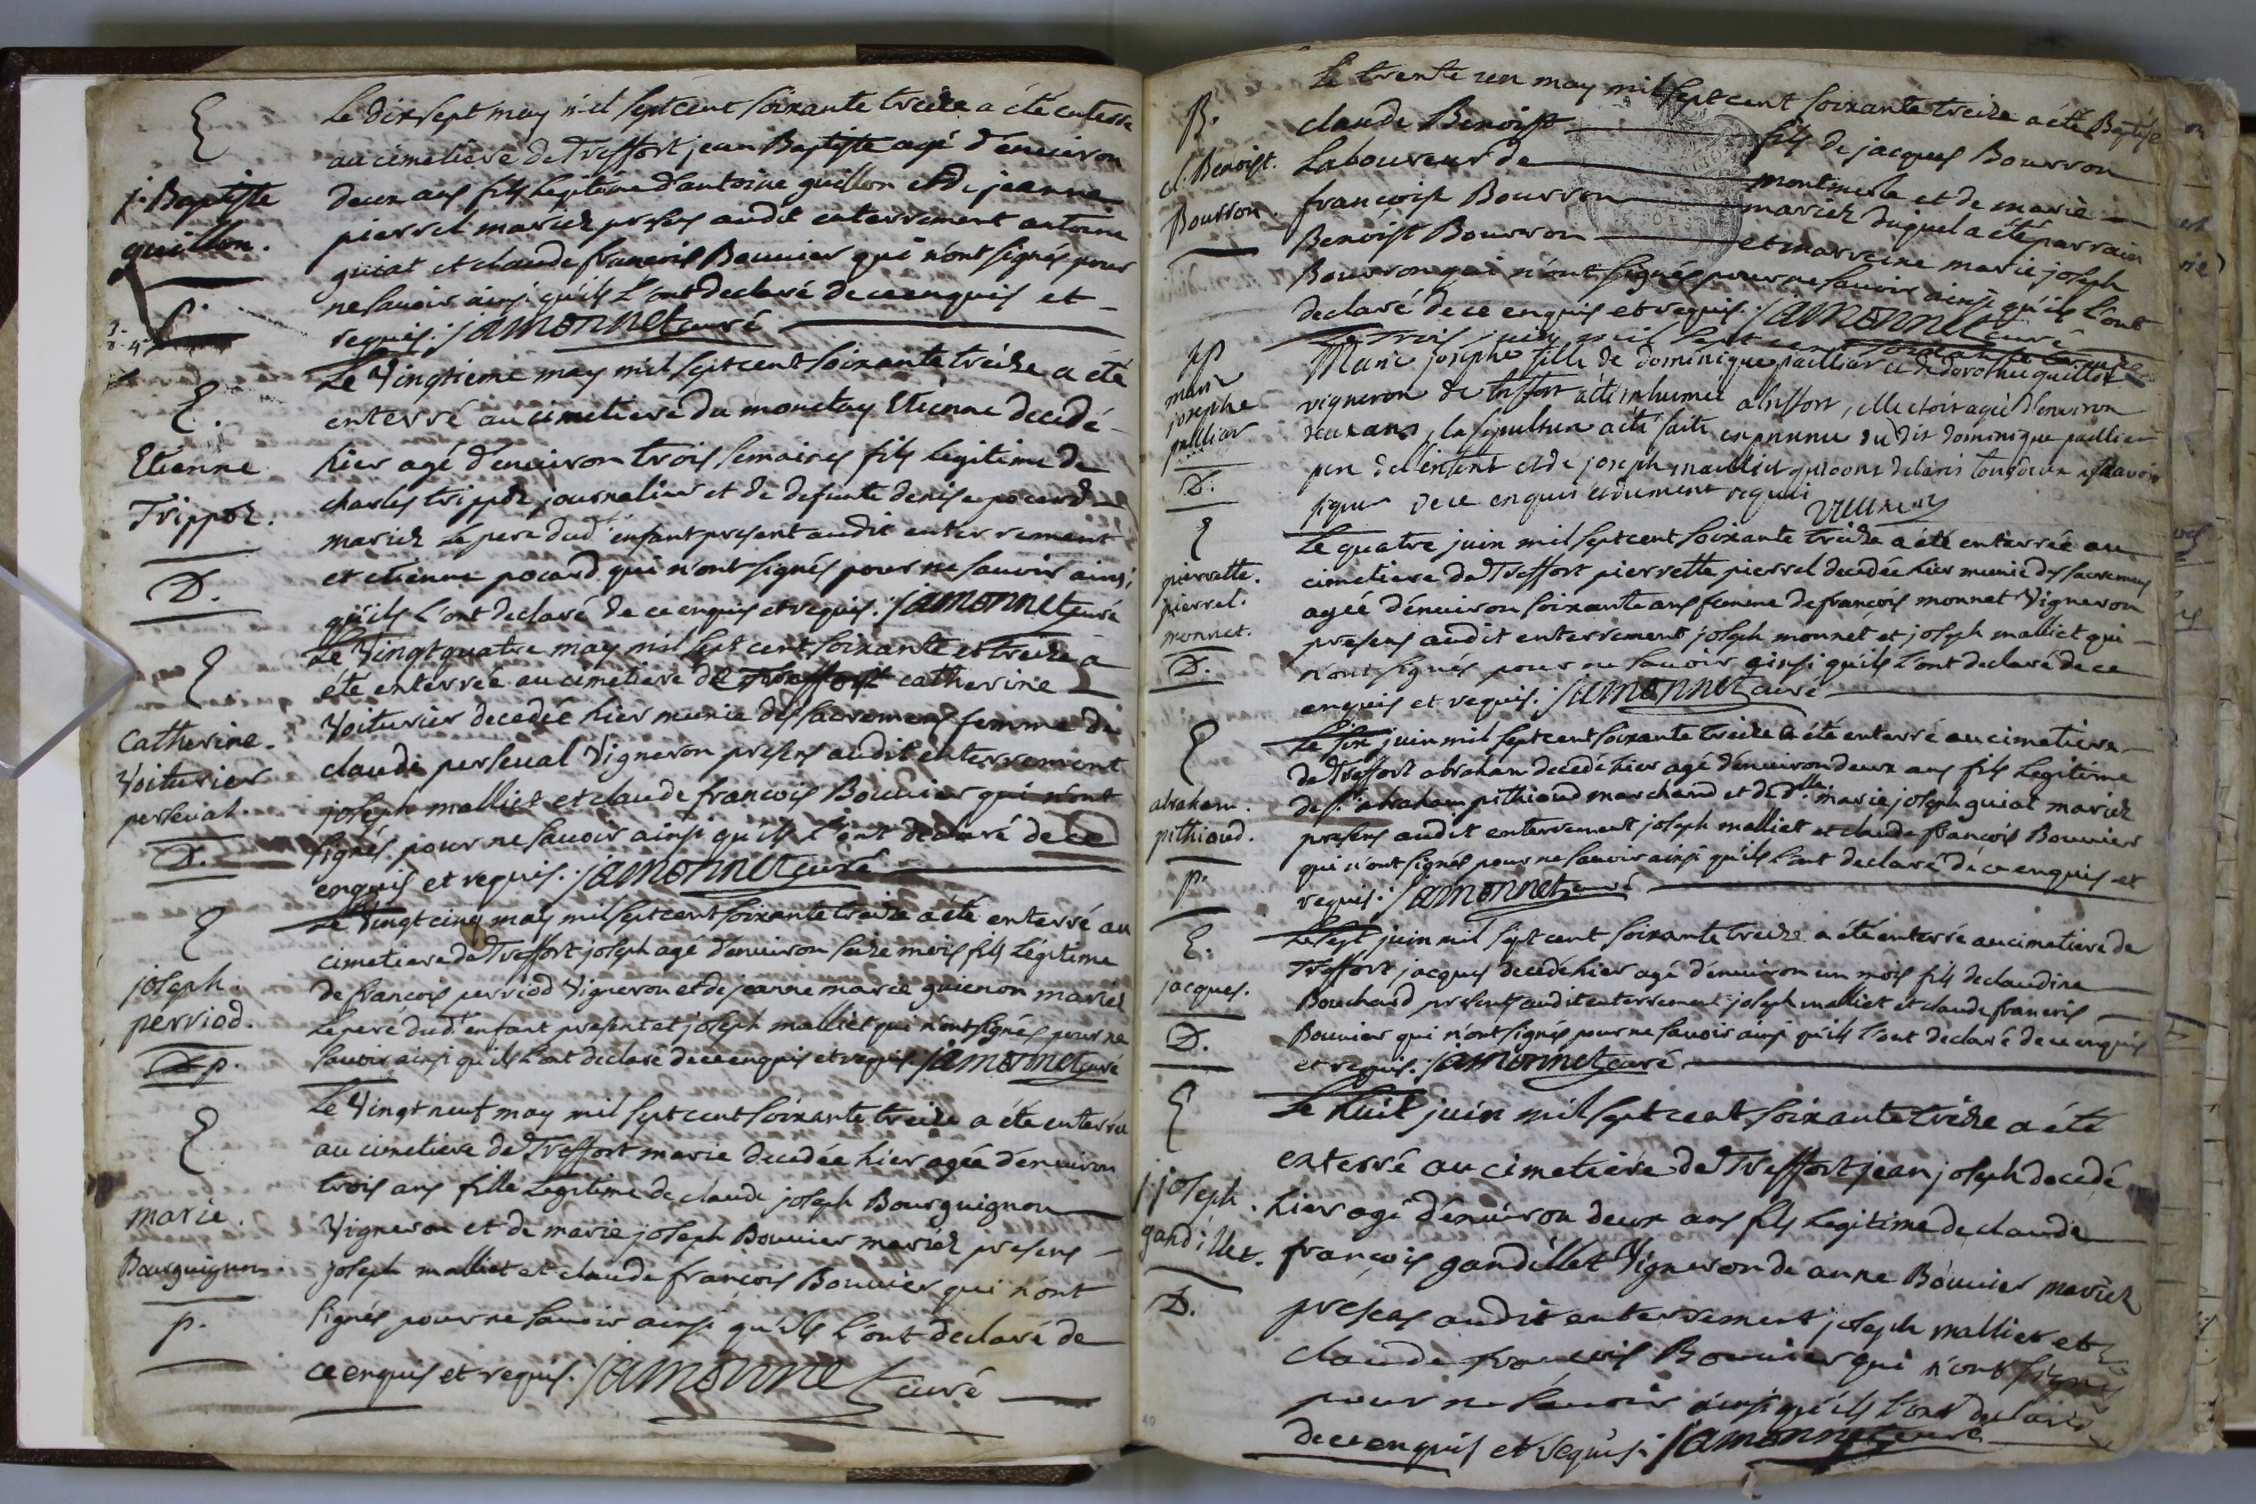 E
j. Baptiste
guillon.
Le dix sept may mil sept cent soixante treize a été enterré
au cimetiere de Treffort jean Baptiste agé d'environ
deux ans fils legitime d'antoine guillon et de jeanne
pierrel mariez presens audit enterrement antoine
guiat et claude francois Bouvier qui n'ont signés pour
ne savoir ainsi qu'ils l'ont declaré de ce enquis et
requis. jamonnet curé
E.
Etienne
Trippoz.
D.
Le Vingtieme may mil sept cent soixante treize a été
enterré au cimetiere du monetay Etienne decedé
hier agé d'environ trois semaines fils legitime de
charles trippoz journalier et de defunte denise pocard
mariez le pere dud' enfant present audit enterrement
et etienne pocard qui n'ont signés pour ne savoir ainsi
qu'ils l'ont declaré de ce enquis et requis. jamonnet curé
E
Catherine.
Voiturier
perseval.
D.
Le Vingt quatre may mil sept cent soixante et treize a
été enterrée au cimetiere de Treffort catherine
Voiturier decedée hier munie des sacremens femme de
claude perseval Vigneron presens audit enterrement
joseph malliet et claude francois Bouvier qui n'ont
signés pour ne savoir ainsi qu'ils l'ont declaré de ce
enquis et requis. jamonnet curé
E
joseph.
perriod.
D. p.
Le Vingt cinq may mil sept cent soixante treize a été enterré au
cimetiere de Treffort joseph agé d'environ seize mois fils légitime
de francois perriod Vigneron et de jeanne marie guienon mariez
le peré dud' enfant present et joseph malliet qui n'ont signés pour ne
savoir ainsi qu'ils l'ont declaré de ce enquis et requis. jamonnet curé
E
marie.
Bourguignon.
p.
Le Vingt neuf may mil sept cent soixante treize a été enterrée
au cimetiere de Treffort marie decedée hier agée d'environ
trois ans fille legitime de claude joseph Bourguignon
Vigneron et de marie joseph Bouvier mariez presens
joseph malliet et claude françois Bouvier qui n'ont
signés pour ne savoir ainsi qu'ils l'ont declaré de
ce enquis et requis. jamonnet curé
B.
cl. Benoist.
Bourron.
Le trente un may mil sept cent soixante treize a été Baptisé
claude Benoist fils de jacques Bourron
Laboureur de montmerle et de marie
françoise Bourron mariez duquel a été parrain
Benoist Bourron et marreine marie joseph
Bourron qui n'ont signés pour ne savoir ainsi qu'ils l'ont
declaré de ce enquis et requis. jamonnet curé
marie
josephe
paillier
D.
Le trois juin mil sept cent soixante
Marie josephe fille de dominique paillier et de dorothée guillot
vigneron de treffort a été inhumée a treffort, elle etoit agée d'environ
deux ans, la sepulture a été faite en presence du dit dominique paillier
pere de l'enfent et de joseph malliet qui ont declarés tous deux ne savoir
signer de ce enquis et dument requis
E
pierrette.
pierrel.
monnet.
D.
Le quatre juin mil sept cent soixante treize a été enterrée au
cimetiere de Treffort pierrette pierrel decedée hier munie des sacremens
agée d'environ soixante ans femme de françois monnet Vigneron
presens audit enterrement joseph monnet et joseph malliet qui
n'ont signés pour ne savoir ainsi qu'ils l'ont declaré de ce
enquis et requis. jamonnet curé
E
abraham.
pithioud.
p.
Le six juin mil sept cent soixante treize a été enterré au cimetiere
de Treffort abraham decedé hier agé d'environ deux ans fils legitime
de s.r abraham pithioud marchand et de d.lle marie joseph guiat mariez
presens audit enterrement joseph malliet et claude francois Bouvier
qui n'ont signés pour ne savoir ainsi qu'ils l'ont declaré de ce enquis et
requis. jamonnet curé
E.
jacques.
D.
Le sept juin mil sept cent soixante treize a été enterré au cimetiere de
Treffort jacques decedé hier agé d'environ un mois fils de claudine
Bouchard presens audit enterrement joseph malliet et claude francois
Bouvier qui n'ont signés pour ne savoir ainsi qu'ils l'ont declaré de ce enquis
et requis. jamonnet curé
E
j. joseph.
gandillet.
D.
Le huit juin mil sept cent soixante treize a été
enterré au cimetiere de Treffort jean joseph decedé
hier agé d'environ deux ans fils legitime de claude
françois gandillet Vigneron de anne Bouvier mariez
presens audit enterrement joseph malliet et
claude francois Bouvier qui n'ont signés
pour ne savoir ainsi qu'ils l'ont declaré
de ce enquis et requis. jamonnet curé